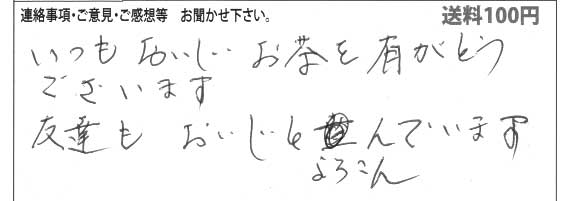 連絡事項・ご意見・ご感想等 お聞かせ下さい。
送料100円
いつも おいしい お茶を 有がとう
ございます
友達も おいしいと んでいます
よろこん